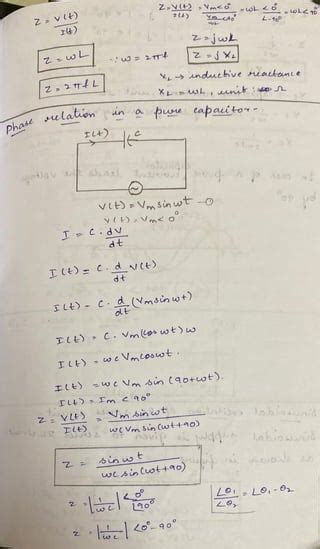 Z = V(t) / I(t)
Z = V(t) / I(t) = Vm<0° / Vm/ωL <0° = ωL <0° / L-90° = ωL <90°
Z = ωL ∵ ω = 2πf
Z = jωL
Z = j XL
Z = 2πf L
XL → inductive reactance
XL = ωL, unit: Ω
Phase relation in a pure capacitor:-
I(t) C
V(t) = Vm sin ωt —①
V(t) = Vm < 0°
I = C · dV/dt
I(t) = C · d/dt V(t)
I(t) = C · d/dt (Vm sin ωt)
I(t) = C · Vm (cos ωt) ω
I(t) = ωC Vm cos ωt.
I(t) = ωC Vm sin (90+ωt).
I(t) = Im < 90°
Z = V(t) / I(t) = Vm sin ωt / ωC Vm sin(ωt+90)
Z = sin ωt / ωC sin(ωt+90)
Z = |1/ωC| <0° / L90°
Lθ1 / Lθ2 = Lθ1 - θ2
Z = |1/ωC| <0° - 90°